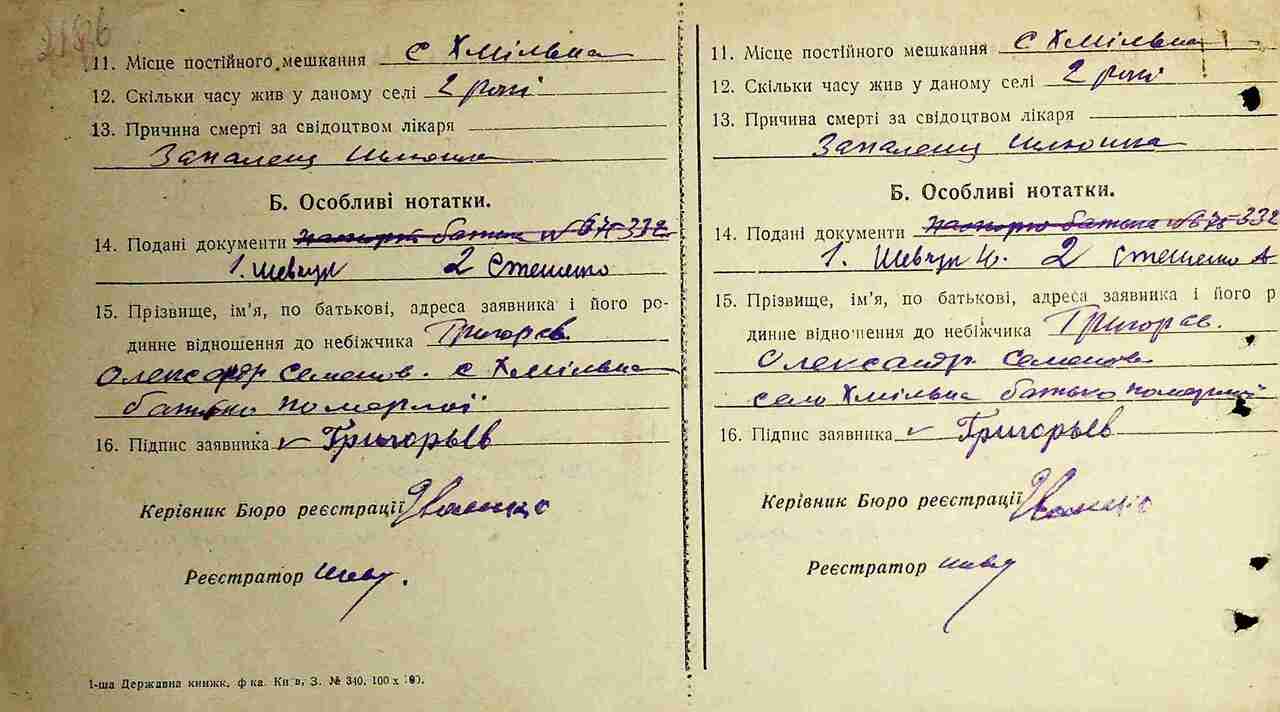 11. Місце постійного мешкання с Хмільна
12. Скільки часу жив у даному селі 2 роки
13. Причина смерті за свідоцтвом лікаря
Запалениц шлюнка
Б. Особливі нотатки.
14. Подані документи паспорт батька № 675332
1. Шевчук 2 Стешенко
15. Прізвище, ім'я, по батькові, адреса заявника і його ро-
динне відношення до небіжчика Григорєв.
Олександр Семенов. с Хмільна
батько померлої
16. Підпис заявника Григорьев
Керівник Бюро реєстрації
Реєстратор Шевч.
1-ша Державна книжк. ф-ка. Київ, З. № 340, 100 х 100.
11. Місце постійного мешкання с Хмільна
12. Скільки часу жив у даному селі 2 роки
13. Причина смерті за свідоцтвом лікаря
Запалениц шлюнка
Б. Особливі нотатки.
14. Подані документи паспорт батька № 675332
1. Шевчук 2 Стешенко А
15. Прізвище, ім'я, по батькові, адреса заявника і його р
динне відношення до небіжчика Григорєв.
Олександр Семенов
село Хмільна батько померлої
16. Підпис заявника Григорьев
Керівник Бюро реєстрації
Реєстратор Шевч